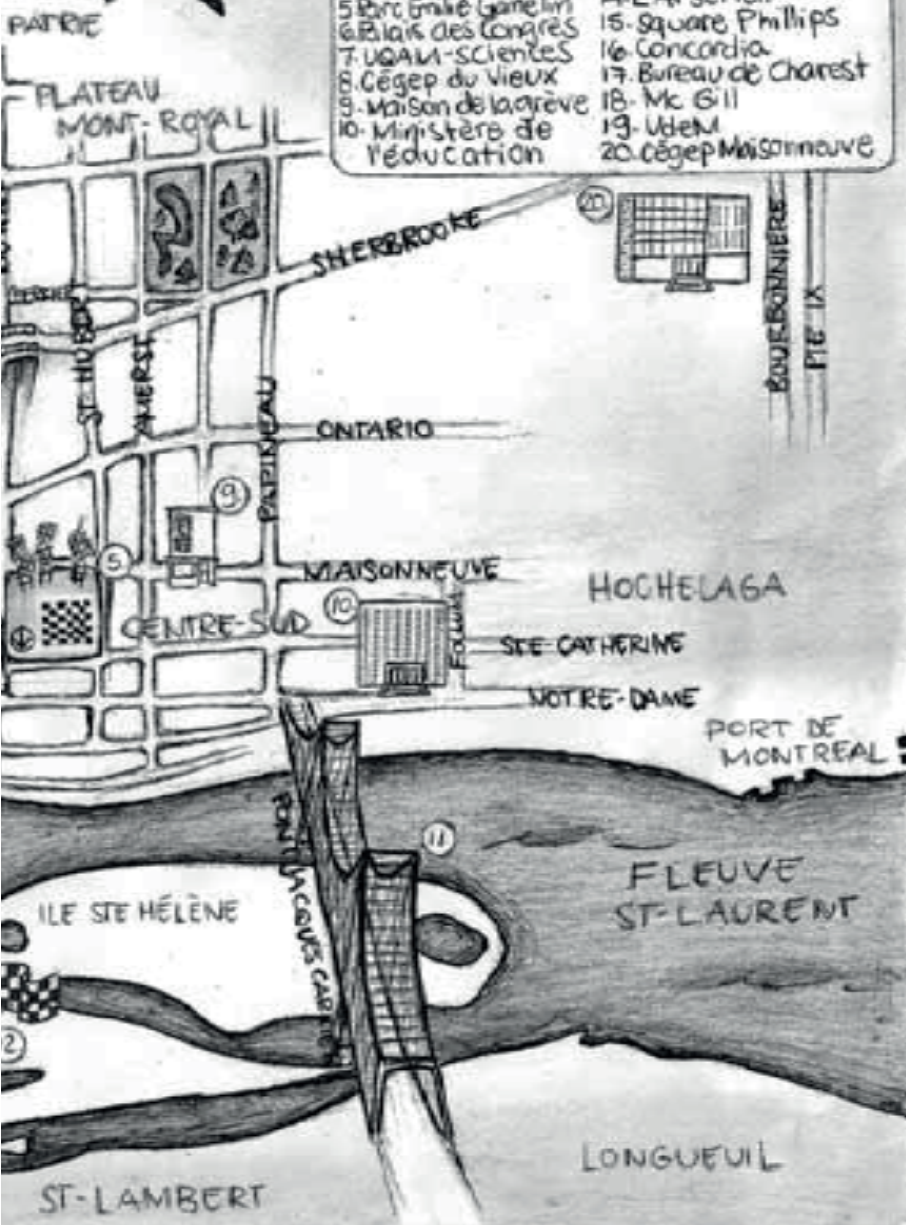 PATRIE
PLATEAU
MONT-ROYAL
5 Parc Émilie Gamelin
6. Palais des congrès
7. UQAM-sciences
8. Cégep du Vieux
9. Maison de la grève
10. Ministère de
l'éducation
15. Square Phillips
16. Concordia
17. Bureau de Charest
18. Mc Gill
19. UdeM
20. cégep Maisonneuve
SHERBROOKE
20
BOURBONNIÈRE
PIE IX
ST HUBERT
AMERST
PAPINEAU
ONTARIO
9
5
MAISONNEUVE
HOCHELAGA
10
CENTRE-SUD
FULLUM
STE-CATHERINE
NOTRE-DAME
PORT DE
MONTREAL
PONT JACQUES CARTIER
11
FLEUVE
ST-LAURENT
ILE STE HÉLÈNE
2
LONGUEUIL
ST-LAMBERT